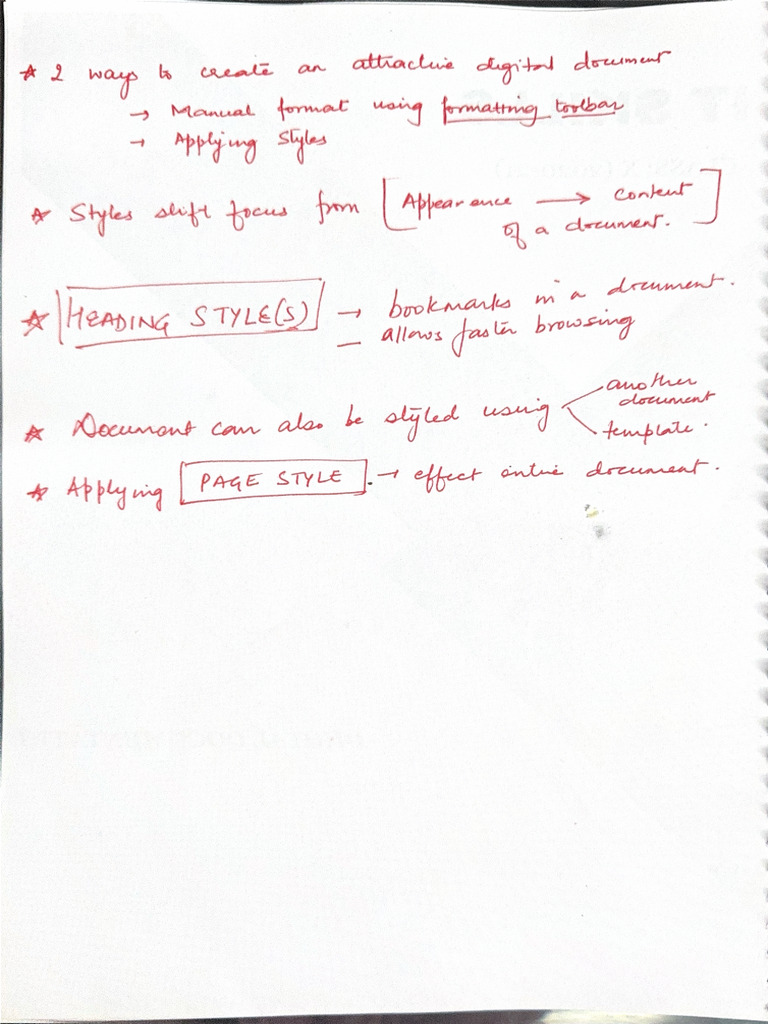 ☆ 2 ways to create an attractive digital document
→ Manual format using formatting toolbar
→ Applying Styles
☆ Styles shift focus from [Appearance → content
of a document.]
☆ HEADING STYLE(S) → bookmarks in a document.
— allows faster browsing
☆ Document can also be styled using another
document
template.
☆ Applying PAGE STYLE. → effect entire document.